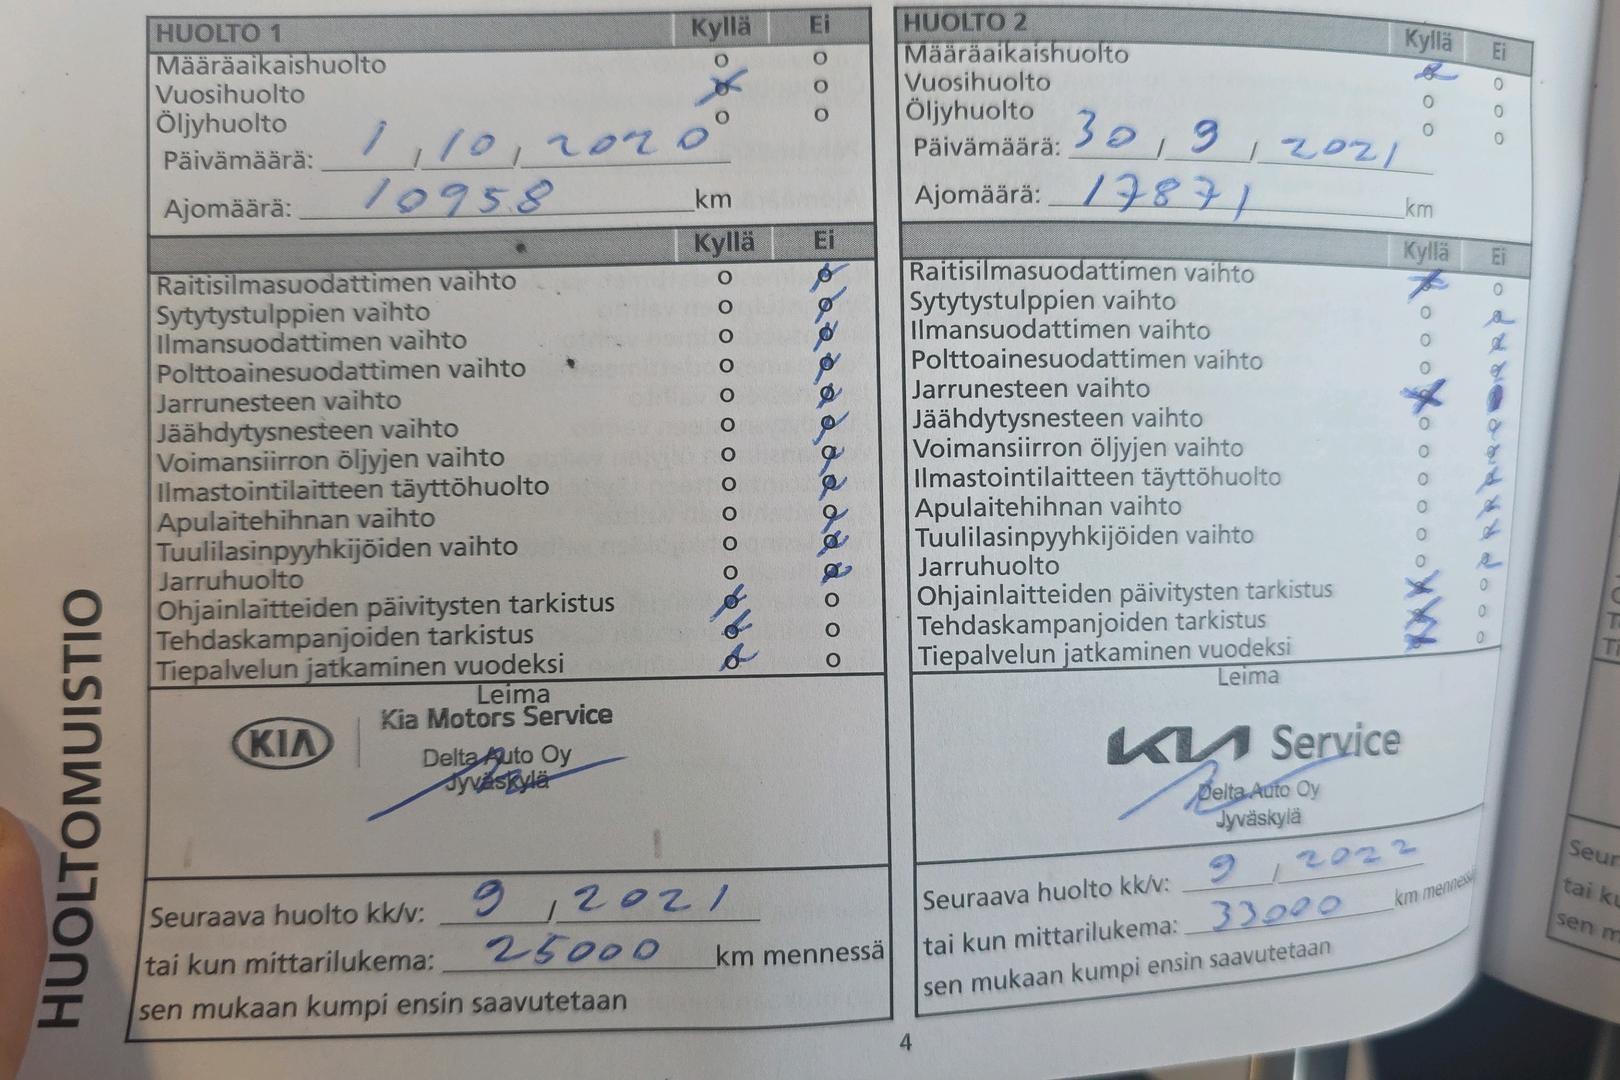 HUOLTOMUISTIO
HUOLTO 1 Kyllä Ei
Määräaikaishuolto o o
Vuosihuolto o o
Öljyhuolto o o
Päivämäärä: 1 / 10 / 2020
Ajomäärä: 10958 km
Kyllä Ei
Raitisilmasuodattimen vaihto o o
Sytytystulppien vaihto o o
Ilmansuodattimen vaihto o o
Polttoainesuodattimen vaihto o o
Jarrunesteen vaihto o o
Jäähdytysnesteen vaihto o o
Voimansiirron öljyjen vaihto o o
Ilmastointilaitteen täyttöhuolto o o
Apulaitehihnan vaihto o o
Tuulilasinpyyhkijöiden vaihto o o
Jarruhuolto o o
Ohjainlaitteiden päivitysten tarkistus o o
Tehdaskampanjoiden tarkistus o o
Tiepalvelun jatkaminen vuodeksi o o
Leima
KIA
Kia Motors Service
Delta Auto Oy
Jyväskylä
Seuraava huolto kk/v: 9 / 2021
tai kun mittarilukema: 25000 km mennessä
sen mukaan kumpi ensin saavutetaan
HUOLTO 2 Kyllä Ei
Määräaikaishuolto o o
Vuosihuolto o o
Öljyhuolto o o
Päivämäärä: 30 / 9 / 2021
Ajomäärä: 17871 km
Kyllä Ei
Raitisilmasuodattimen vaihto o o
Sytytystulppien vaihto o o
Ilmansuodattimen vaihto o o
Polttoainesuodattimen vaihto o o
Jarrunesteen vaihto o o
Jäähdytysnesteen vaihto o o
Voimansiirron öljyjen vaihto o o
Ilmastointilaitteen täyttöhuolto o o
Apulaitehihnan vaihto o o
Tuulilasinpyyhkijöiden vaihto o o
Jarruhuolto o o
Ohjainlaitteiden päivitysten tarkistus o o
Tehdaskampanjoiden tarkistus o o
Tiepalvelun jatkaminen vuodeksi o o
Leima
KIA Service
Delta Auto Oy
Jyväskylä
Seuraava huolto kk/v: 9 / 2022
tai kun mittarilukema: 33000 km mennessä
sen mukaan kumpi ensin saavutetaan
4
Seur
tai ku
sen m